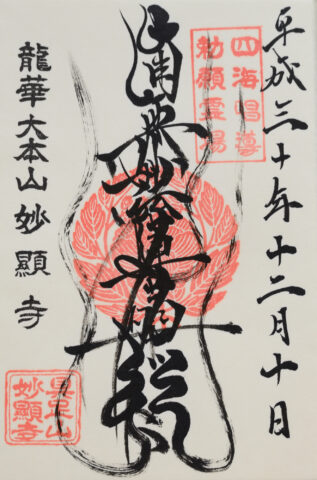 平成三十年十二月十日
四海唱導
勅願霊場
南無妙法蓮華経
龍華大本山妙顯寺
具足山
妙顕寺